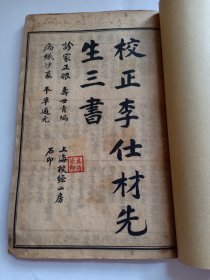 校正李仕材先
生三書
診家正眼 壽世青編
病機沙篆 本草通元
上海校經山房
石印